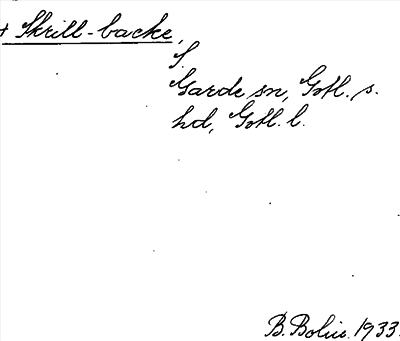 + Skrill-backe,
S.
Garde sn, Gotl. s.
hd, Gotl. l.
B. Bolin 1933.